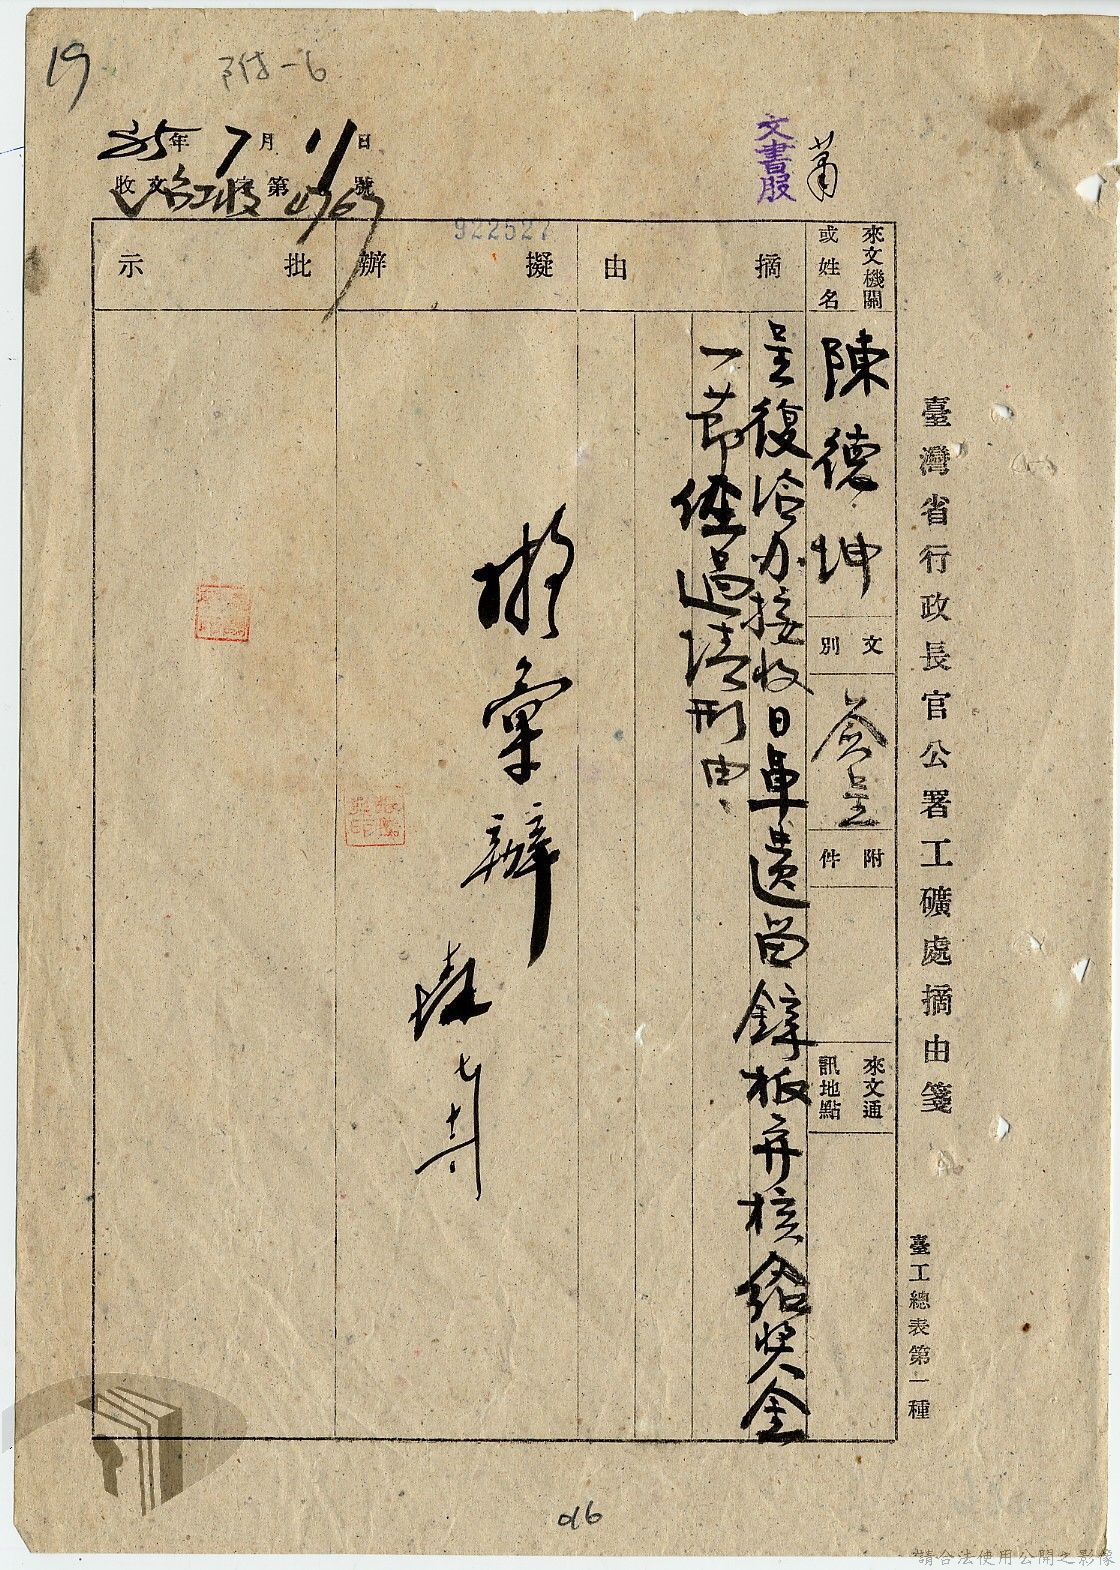 臺灣省行政長官公署工礦處摘由箋
臺工總表第一種
19
附-6
35年7月11日
收文 字第 號
922527
文書股
來文機關或姓名
陳德坤
文別
簽呈
附件
來文通訊地點
摘由
呈復洽办接收日軍遺留鋅板并核給奬金
一節經過請 由
擬辦
擬彙辦
批示
016
請合法使用公開之影像